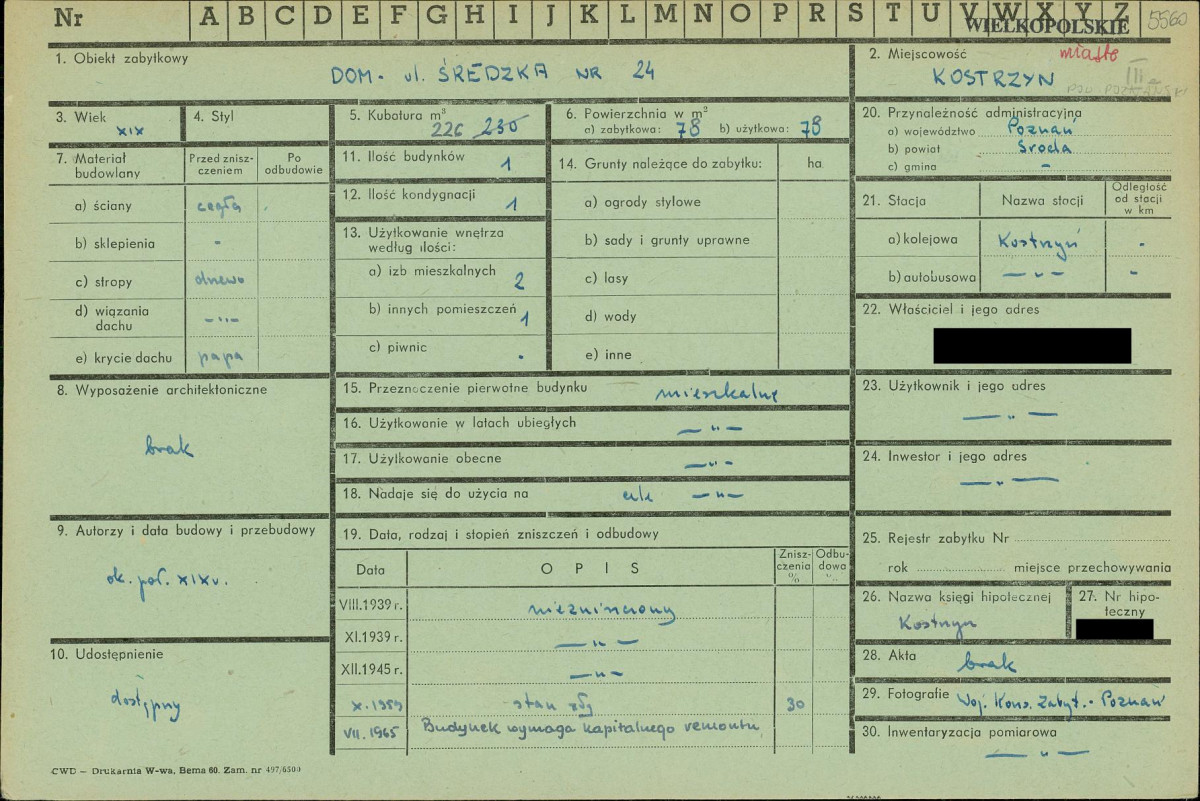 Nr A B C D E F G H I J K L M N O P R S T U V W X Y Z
WIELKOPOLSKIE
5560
1. Obiekt zabytkowy
DOM - ul. ŚREDZKA NR 24
2. Miejscowość miasto
KOSTRZYN III
POW POZNAŃSKI
3. Wiek
XIX
4. Styl
5. Kubatura m³
226 230
6. Powierzchnia w m²
a) zabytkowa: 78 b) użytkowa: 78
20. Przynależność administracyjna
a) województwo Poznań
b) powiat Środa
c) gmina -
7. Materiał budowlany
Przed zniszczeniem
Po odbudowie
a) ściany cegła
b) sklepienia -
c) stropy drewo
d) wiązania dachu -"-
e) krycie dachu papa
11. Ilość budynków 1
12. Ilość kondygnacji 1
13. Użytkowanie wnętrza według ilości:
a) izb mieszkalnych 2
b) innych pomieszczeń 1
c) piwnic .
14. Grunty należące do zabytku: ha
a) ogrody stylowe
b) sady i grunty uprawne
c) lasy
d) wody
e) inne
21. Stacja
Nazwa stacji
Odległość od stacji w km
a) kolejowa Kostrzyń -
b) autobusowa -"- -
22. Właściciel i jego adres
8. Wyposażenie architektoniczne
brak
15. Przeznoczenie pierwotne budynku mieszkalne
16. Użytkowanie w latach ubiegłych -"-
17. Użytkowanie obecne -"-
18. Nadaje się do użycia na cele -"-
23. Użytkownik i jego adres
-"-
24. Inwestor i jego adres
-"-
9. Autorzy i data budowy i przebudowy
ok. poł. XIX w.
19. Data, rodzaj i stopień zniszczeń i odbudowy
Data OPIS Zniszczenia % Odbudowa %
VIII.1939 r. niezniszczony
XI.1939 r. -"-
XII.1945 r. -"-
X.1959 stan zły 30
VII.1965 Budynek wymaga kapitalnego remontu
25. Rejestr zabytku Nr
rok miejsce przechowywania
26. Nazwa księgi hipotecznej
Kostrzyn
27. Nr hipoteczny
10. Udostępnienie
dostępny
28. Akta brak
29. Fotografie Woj. Kons. Zabyt. - Poznań
30. Inwentaryzacja pomiarowa
-"-
CWD – Drukarnia W-wa, Bema 60. Zam. nr 497/6500